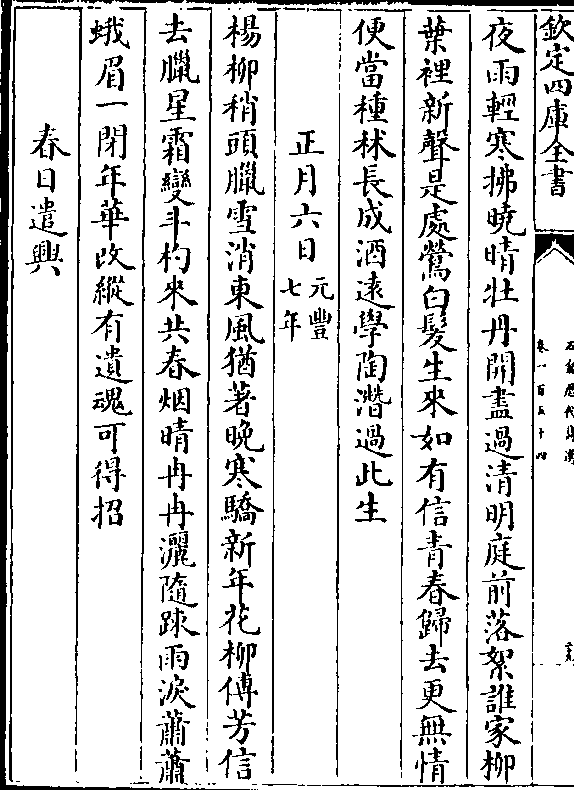 欽定四庫全書
石倉歷代詩選
卷一百五十四
夜雨輕寒拂曉晴牡丹開盡過清明庭前落絮誰家柳
葉裡新聲是處鶯白髮生來如有信青春歸去更無情
便當種秫長成酒遠學陶潛過此生
正月六日元豐七年
楊柳稍頭臘雪消東風猶著晚寒驕新年花柳傳芳信
去臘星霜變斗杓來共春烟晴冉冉灑隨踈雨淚蕭蕭
蛾眉一閉年華改縱有遺魂可得招
春日遣興